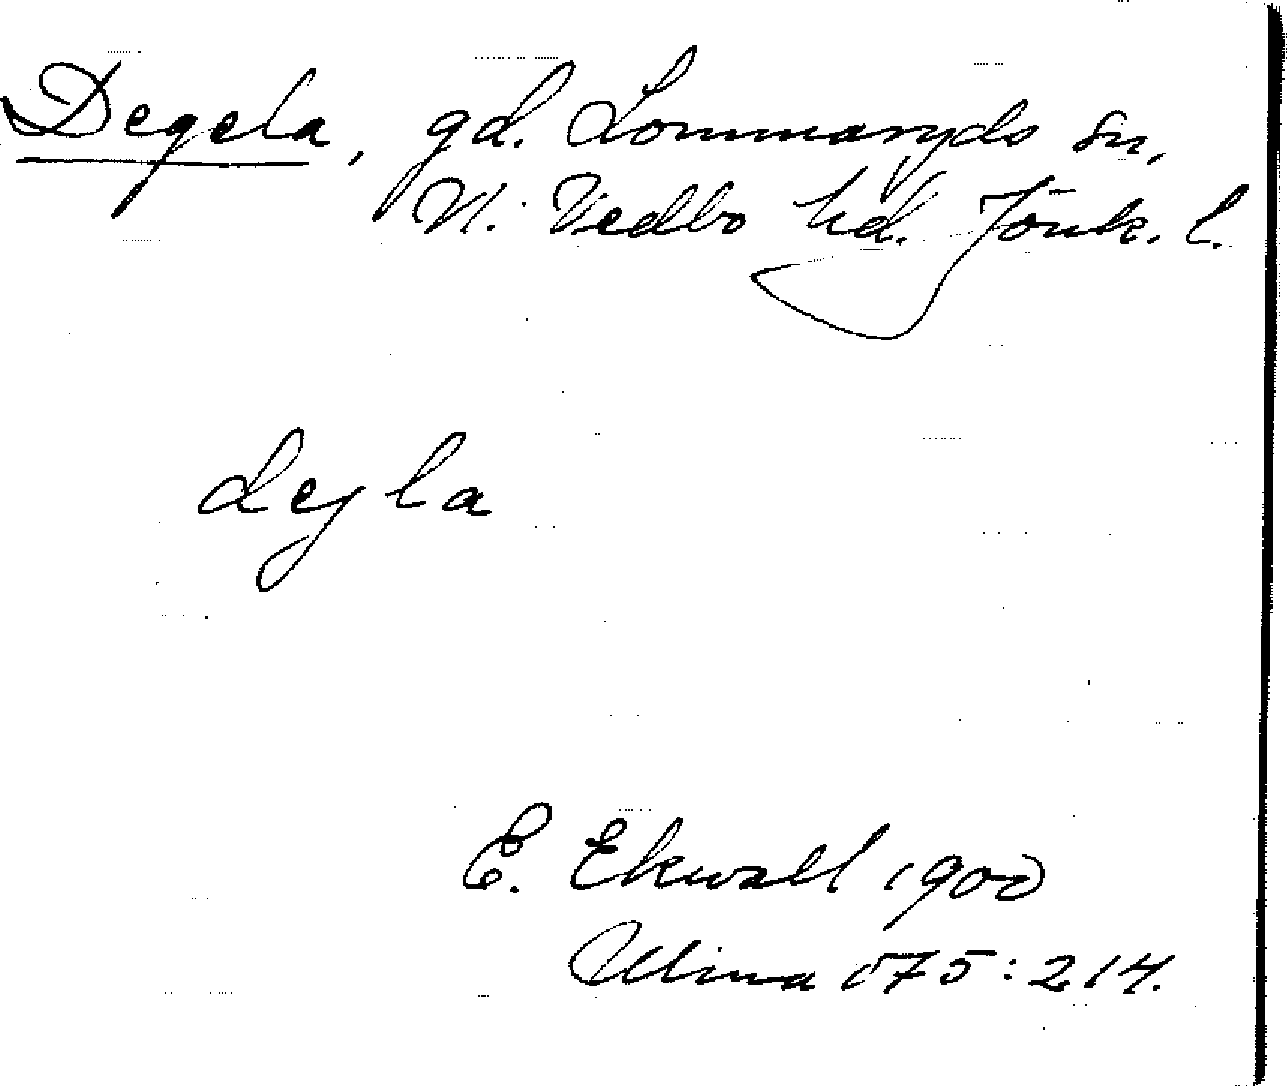 Degela, gd. Lommaryds sn,
N. Vedbo hd. Jönk. l.
degla
E. Ekwall 1900
Ullma 075:214.